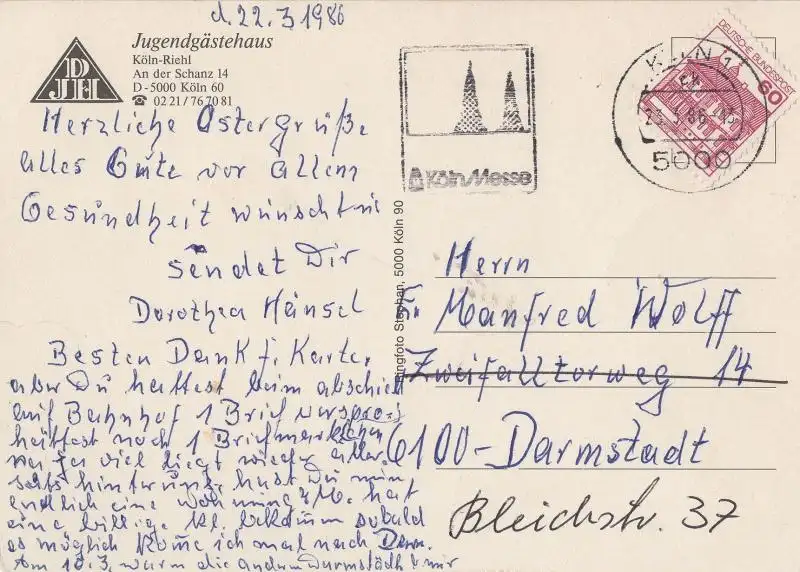 d. 22.3.1986
DJH
Jugendgästehaus
Köln-Riehl
An der Schanz 14
D-5000 Köln 60
☎ 02 21/76 70 81
Herzliche Ostergrüße
alles Gute vor allem
Gesundheit wünscht
sendet Dir
Dorothea Hänsel
Besten Dank f. Karte,
aber Du hattest beim abschied
auf Bahnhof 1 Brief verspro-
hättest noch 1 Briefmarke
viel liegt wieder
hinter uns, hast Du nun
endlich eine Wohnung u. M. hat
eine billige kl. bekommen sobald
es möglich komme ich mal nach Darm.
Am 10.3. warn die andern Darmstädt mir
Stephan, 5000 Köln 90
Köln/Messe
KÖLN 1
86
5000
DEUTSCHE BUNDESPOST
60
Herrn
Manfred Wolff
Zweifalltorweg 14
6100-Darmstadt
Bleichstr. 37